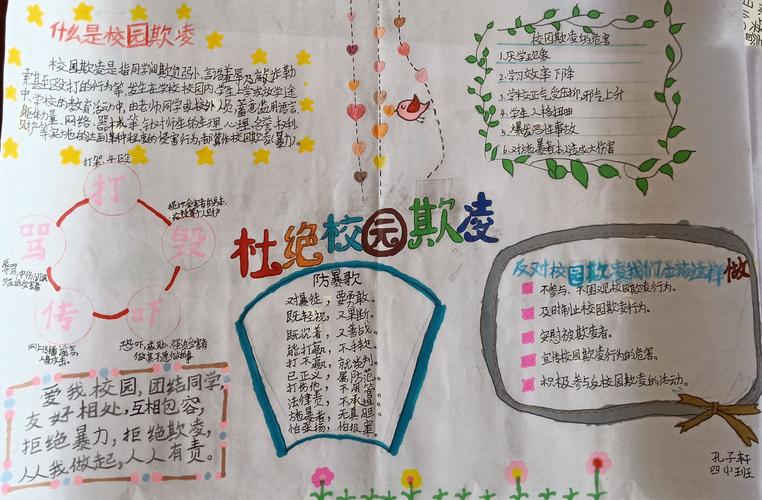 什么是校园欺凌
校园欺凌是指同学间欺负弱小、言语羞辱及敲诈勒
索甚至殴打的行为等，发生在学校校园内、学生上学或放学途
中、学校的教育活动中，由老师、同学或校外人员，蓄意滥用语言、
躯体力量、网络、器械等，针对师生的生理、心理、名誉、权利、
财产等实施的达到某种程度的侵害行为，都算作校园欺凌（暴力）。
打架、斗殴
打
毁
吓
传
骂
网上传播谣言、
人身攻击。
爱我校园，团结同学，
友好相处，互相包容，
拒绝暴力，拒绝欺凌，
人人我做起，人人有责。
杜绝校园欺凌
防暴歌
对暴徒，要勇敢。
既轻视，又果断。
既沉着，又善战。
能打赢，不手软。
打不赢，就谈判。
已正义，属防范。
打伤他，不用管。
法律责，不承担。
施暴者，无真胆。
怕张扬，怕报案。
校园欺凌的危害
1.厌学现象
2.学习效率下降
3.学校正气受压抑，邪气上升
4.学生人格扭曲
5.爆发恶性事故
6.对施暴者本人造成大伤害
反对校园欺凌我们应该这样做
不参与、不围观校园欺凌行为。
及时制止校园欺凌行为。
安慰被欺凌者。
宣传校园欺凌行为的危害。
积极参与反校园欺凌的活动。
孔子轩
四（1）班